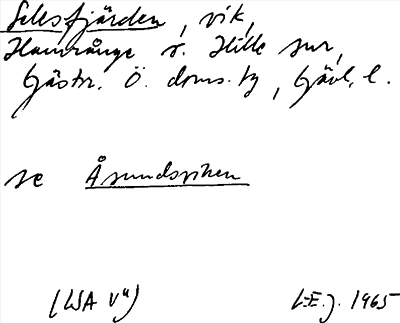 Selesfjärden, vik,
Hamrånge o. Hille snr,
Gästr. Ö. doms. tg, Gävl. l.
se Åsundsviken
(LSA V4)
L-E.J. 1965